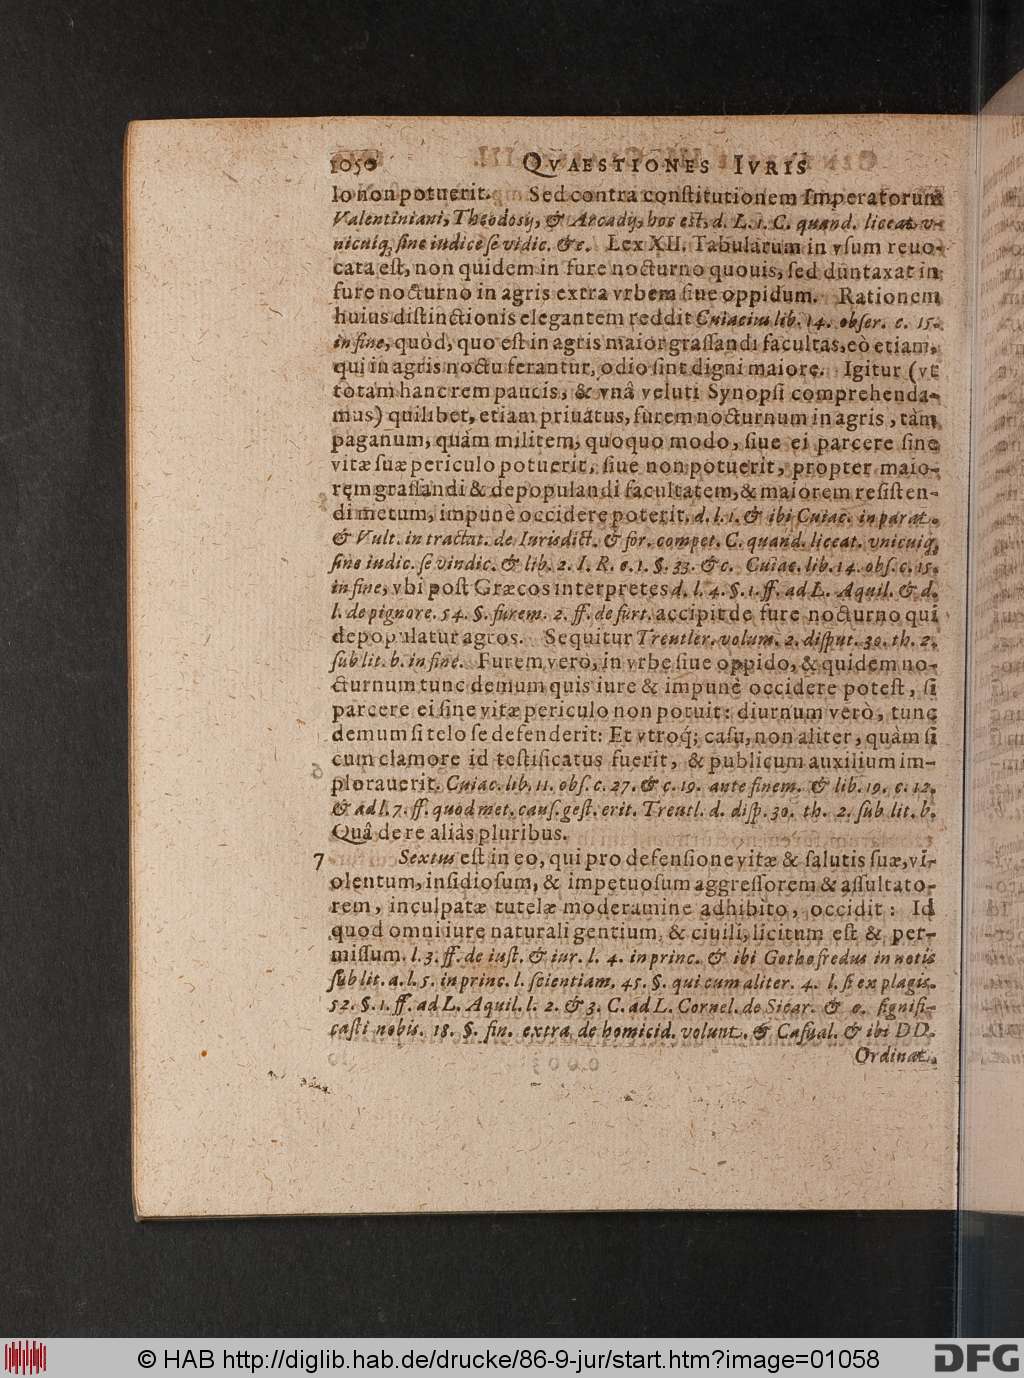 1050 QVAESTIONES IVRIS
lo non potuerit. Sed contra conſtitutionem Imperatorum
Valentiniani, Theodosij, & Arcadij, hos eſt, d. L. 1. C. quand. liceat. v-
nicuiq; ſine iudice ſe vidic. &c. Lex XII. Tabularum in vſum reuo-
cata eſt, non quidem in fure nocturno quouis, ſed duntaxat in
fure nocturno in agris extra vrbem ſiue oppidum. Rationem
huius diſtinctionis elegantem reddit Cuiacius lib. 14. obſer. c. 15.
in fine, quòd, quo eſt in agris maior graſſandi facultas, eò etiam,
qui in agris noctu ferantur, odio ſint digni maiore. Igitur (vt
totam hanc rem paucis, & vnâ veluti Synopſi comprehenda-
mus) quilibet, etiam priuatus, furem nocturnum in agris, tàm
paganum, quàm militem, quoquo modo, ſiue ei parcere ſine
vitæ ſuæ periculo potuerit, ſiue non potuerit, propter maio-
rem graſſandi & depopulandi facultatem, & maiorem reſiſten-
di metum, impunè occidere poterit. d. l. 1. & ibi Cuiac. in parat.
& Vult. in tractat. de Iurisdict. & for. compet. C. quand. liceat. vnicuiq;
ſine iudic. ſe vindic. & lib. 2. I. R. c. 1. §. 33. &c. Cuiac. lib. 14. obſ. c. 15.
in fine, vbi poſt Græcos interpretes d. l. 4. §. 1. ff. ad L. Aquil. & d.
l. de pignore. 54. §. furem. 2. ff. de furt. accipit de fure nocturno qui
depopulatur agros. Sequitur Treutler. volum. 2. diſput. 30. th. 2.
ſub lit. b. in fine. Furem verò, in vrbe ſiue oppido, & quidem no-
cturnum tunc demum quis iure & impunè occidere poteſt, ſi
parcere ei ſine vitæ periculo non potuit: diurnum verò, tunc
demum ſi telo ſe defenderit: Et vtroq; caſu, non aliter, quàm ſi
cum clamore id teſtificatus fuerit, & publicum auxilium im-
plorauerit. Cuiac. lib. 11. obſ. c. 27. & c. 19. ante finem. & lib. 19. c. 12.
& ad l. 7. ff. quod met. cauſ. geſt. erit. Treutl. d. diſp. 30. th. 2. ſub lit. b.
Quâ de re aliàs pluribus.
7 Sextus eſt in eo, qui pro defenſione vitæ & ſalutis ſuæ, vi-
olentum, inſidioſum, & impetuoſum aggreſſorem & aſſultato-
rem, inculpatæ tutelæ moderamine adhibito, occidit: Id
quod omni iure naturali gentium, & ciuili, licitum eſt & per-
miſſum. l. 3. ff. de iuſt. & iur. l. 4. in princ. & ibi Gothofredus in notis
ſub lit. a. l. 5. in princ. l. ſcientiam. 45. §. qui cum aliter. 4. l. ſi ex plagis.
52. §. 1. ff. ad L. Aquil. l. 2. & 3. C. ad L. Cornel. de Sicar. & c. ſignifi-
caſti nobis. 18. §. fin. extra de homicid. volunt. & Caſual. & ibi DD.
Ordinat.
© HAB http://diglib.hab.de/drucke/86-9-jur/start.htm?image=01058
DFG